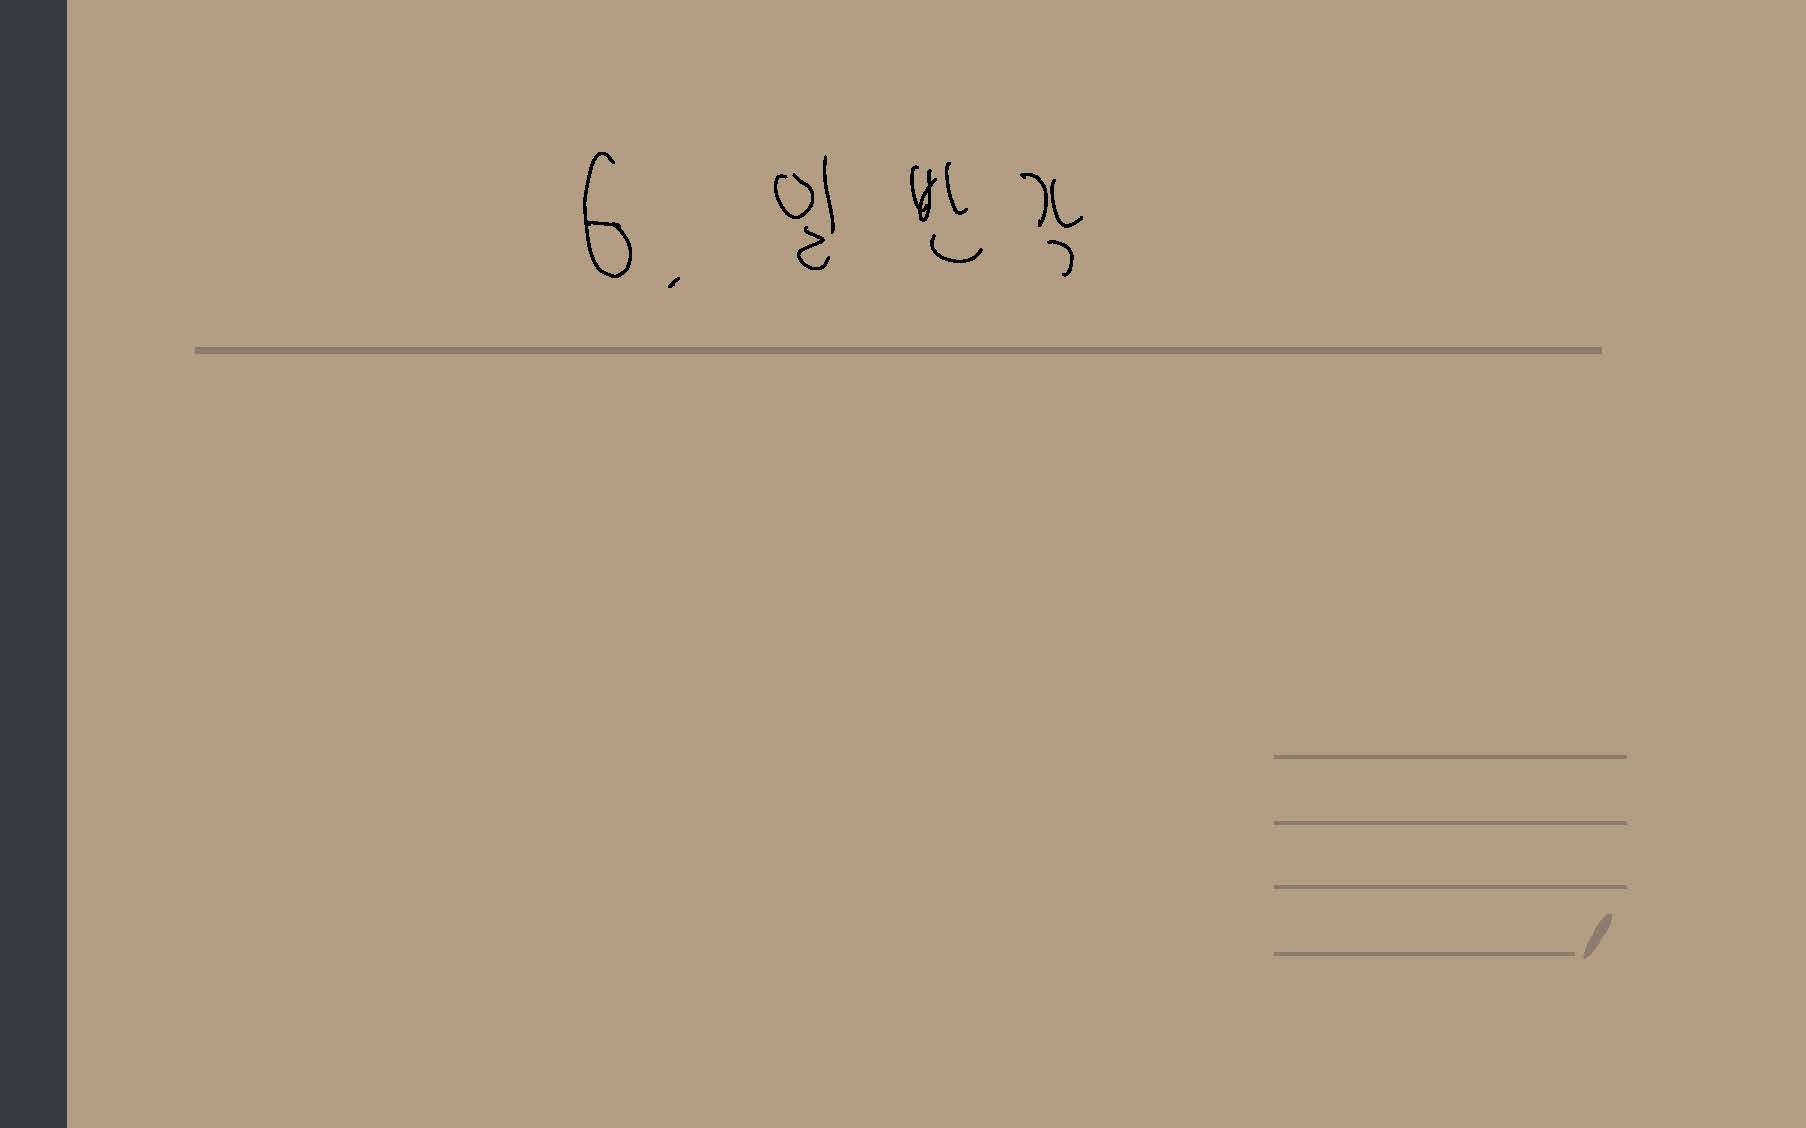 6. 일반각